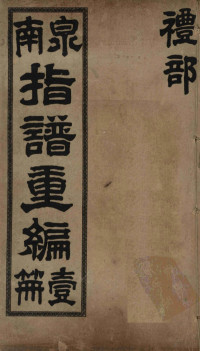 禮部
泉南
指譜重編
壹篇